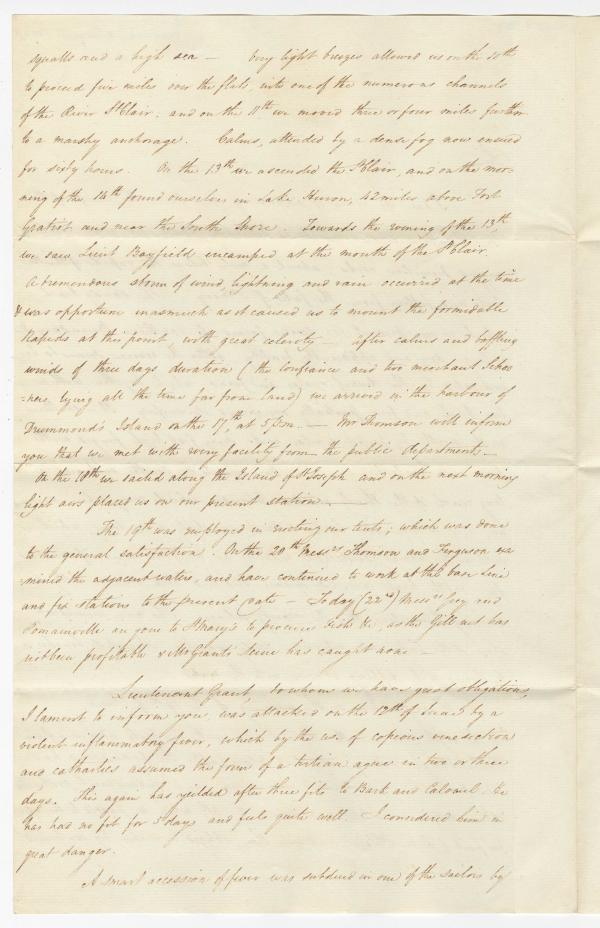 squalls and a high sea — Very light breezes allowed us on the 10th
to proceed five miles over the flats into one of the numerous channels
of the River St Clair; and on the 11th we moved three or four miles further
to a marshy anchorage. Calms, attended by a dense fog now ensued
for sixty hours. On the 13th we ascended the St Clair, and on the mor-
ning of the 14th found ourselves in Lake Huron, 42 miles above Fort
Gratiot and near the South Shore. Towards the evening of the 13th,
we saw Lieut Bayfield encamped at the mouth of the St Clair.
A tremendous storm of wind, lightning and rain occurred at the time
& was opportune inasmuch as it caused us to mount the formidable
Rapids at this point, with great celerity — after calms and baffling
winds of three days duration (the Confiance and two merchant Schoo
-ners lying all the time far from land) we arrived in the harbour of
Drummond's Island on the 17th, at 5 p.m. — Mr Thomson will inform
you that we met with every facility from the public departments. —
On the 18th we sailed along the Island of St Joseph and on the next morning
light airs placed us on our present station. —
The 19th was employed in erecting our tents; which was done
to the general satisfaction. On the 20th Messrs Thomson and Ferguson exa
mined the adjacent waters, and have continued to work at the base line
and fix stations to the present date — Today (22nd) Messrs Grey and
Pomainville are gone to St Mary's to procure fish &c, as the Gill net has
not been profitable & Mr Grant's Seine has caught none —
Lieutenant Grant, to whom we have great obligations,
I lament to inform you, was attacked on the 12th of by a
violent inflammatory fever, which by the use of copious venesection
and cathartics assumed the form of a tertian ague in two or three
days. This again has yeilded after three fits to Bark and Calomel. he
has had no fit for 5 days and feels quite well. I considered him in
great danger.
A smart accession of fever was subdued in one of the sailors by